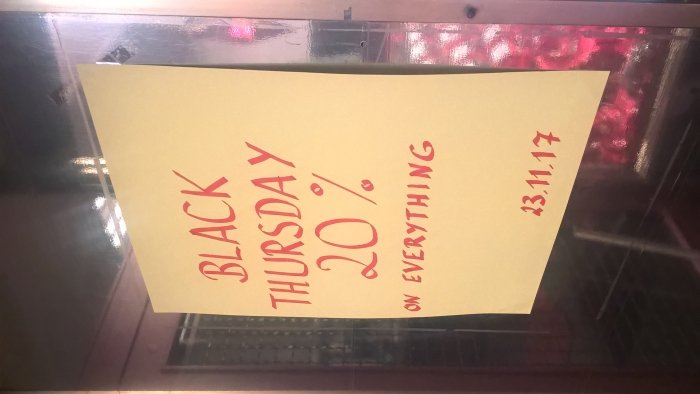 BLACK
THURSDAY
20%
ON EVERYTHING
23.11.17